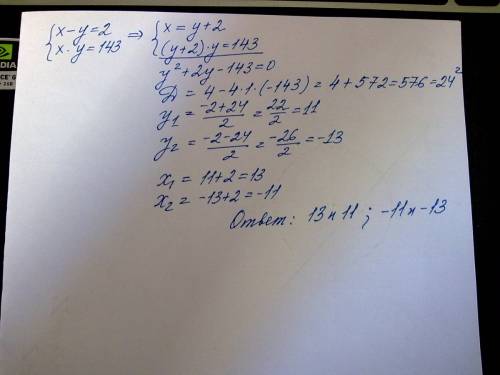 {x-y=2 ⇒ {x=y+2
{x·y=143 {(y+2)·y=143
y²+2y-143=0
D=4-4·1·(-143)=4+572=576=24²
y₁=(-2+24)/2=22/2=11
y₂=(-2-24)/2=-26/2=-13
x₁=11+2=13
x₂=-13+2=-11
Ответ: 13и11; -11и-13